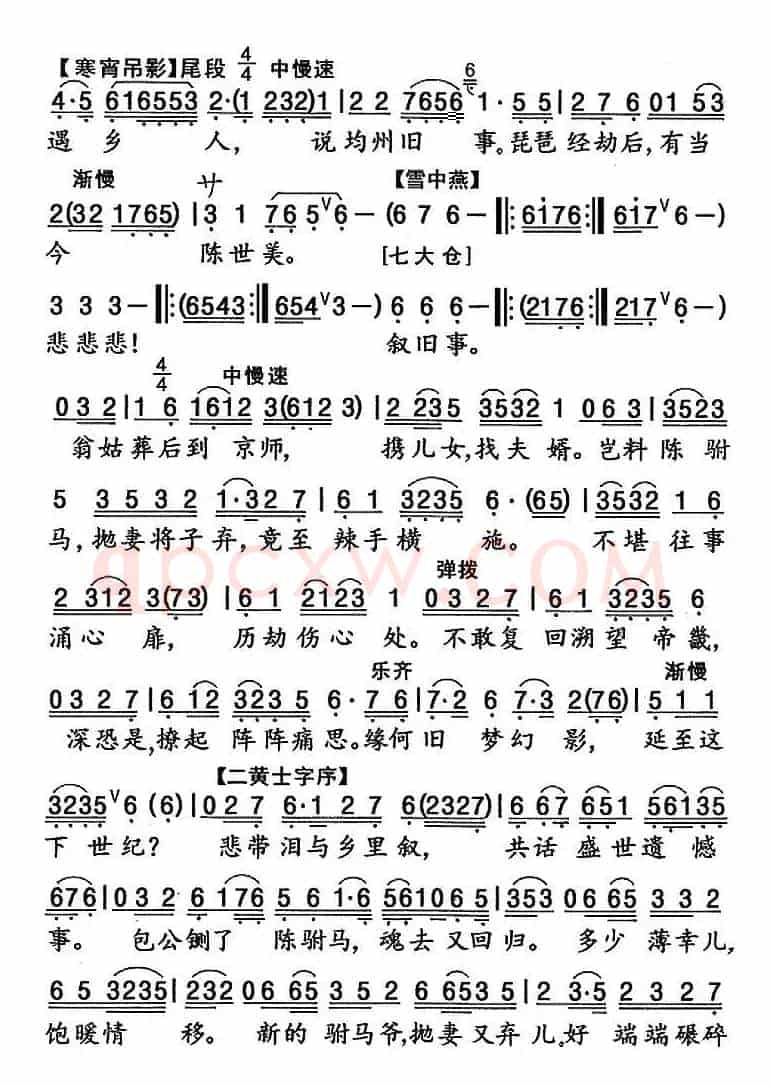 【寒宵吊影】尾段 4/4 中慢速
遇乡人，说均州旧事。琵琶经劫后，有当
渐慢 サ 【雪中燕】
今陈世美。[七大仓]
悲悲悲！叙旧事。
4/4 中慢速
0 3 2 | 1 6 1612 3(612 3) | 2 235 3532 1 0 6 3 | 3523
翁姑葬后到京师，携儿女，找夫婿。岂料陈驸
5 3 5 3 2 1·32 7 | 6 1 3235 6·(65) | 3532 1 6
马，抛妻将子弃，竟至辣手横施。不堪往事
弹拨
2 312 3(73) | 6 1 2123 1 0 3 2 7 | 6 1 3235 6
涌心扉，历劫伤心处。不敢复回溯望帝畿，
乐齐 渐慢
0 3 2 7 | 6 12 3235 6·7 6 | 7·2 6 7·3 2(76) | 5 1 1
深恐是，撩起阵阵痛思。缘何旧梦幻影，延至这
【二黄士字序】
3235 6 (6) | 0 2 7 6·1 2 7 6(2327) | 6 67 651 56135
下世纪？悲带泪与乡里叙，共话盛世遗憾
676 | 0 3 2 6 176 5 6 1·6 561065 | 353 0 6 65 3 3 2
事。包公铡了陈驸马，魂去又回归。多少薄幸儿，
6 5 3235 | 232 0 6 65 3 5 2 6 6535 | 2 23·5 2 1 2
饱暖情移。新的驸马爷，抛妻又弃儿。好端端碾碎
qpcxw.COM